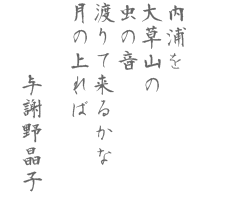 内浦を
大草山の
虫の音
渡りて来るかな
月の上れば
与謝野晶子